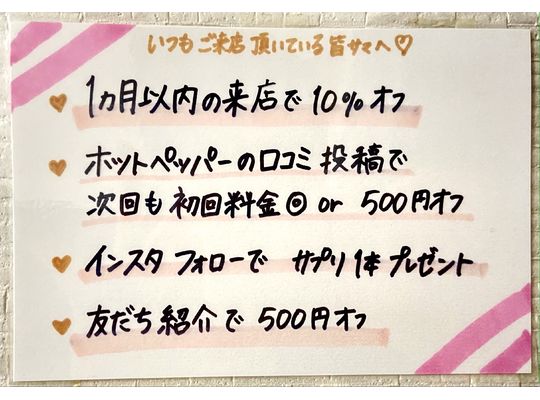 いつもご来店頂いている皆サマへ♡
1ヵ月以内の来店で 10%オフ
ホットペッパーの口コミ投稿で
次回も初回料金◎ or 500円オフ
インスタフォローで サプリ1本プレゼント
友だち紹介で 500円オフ